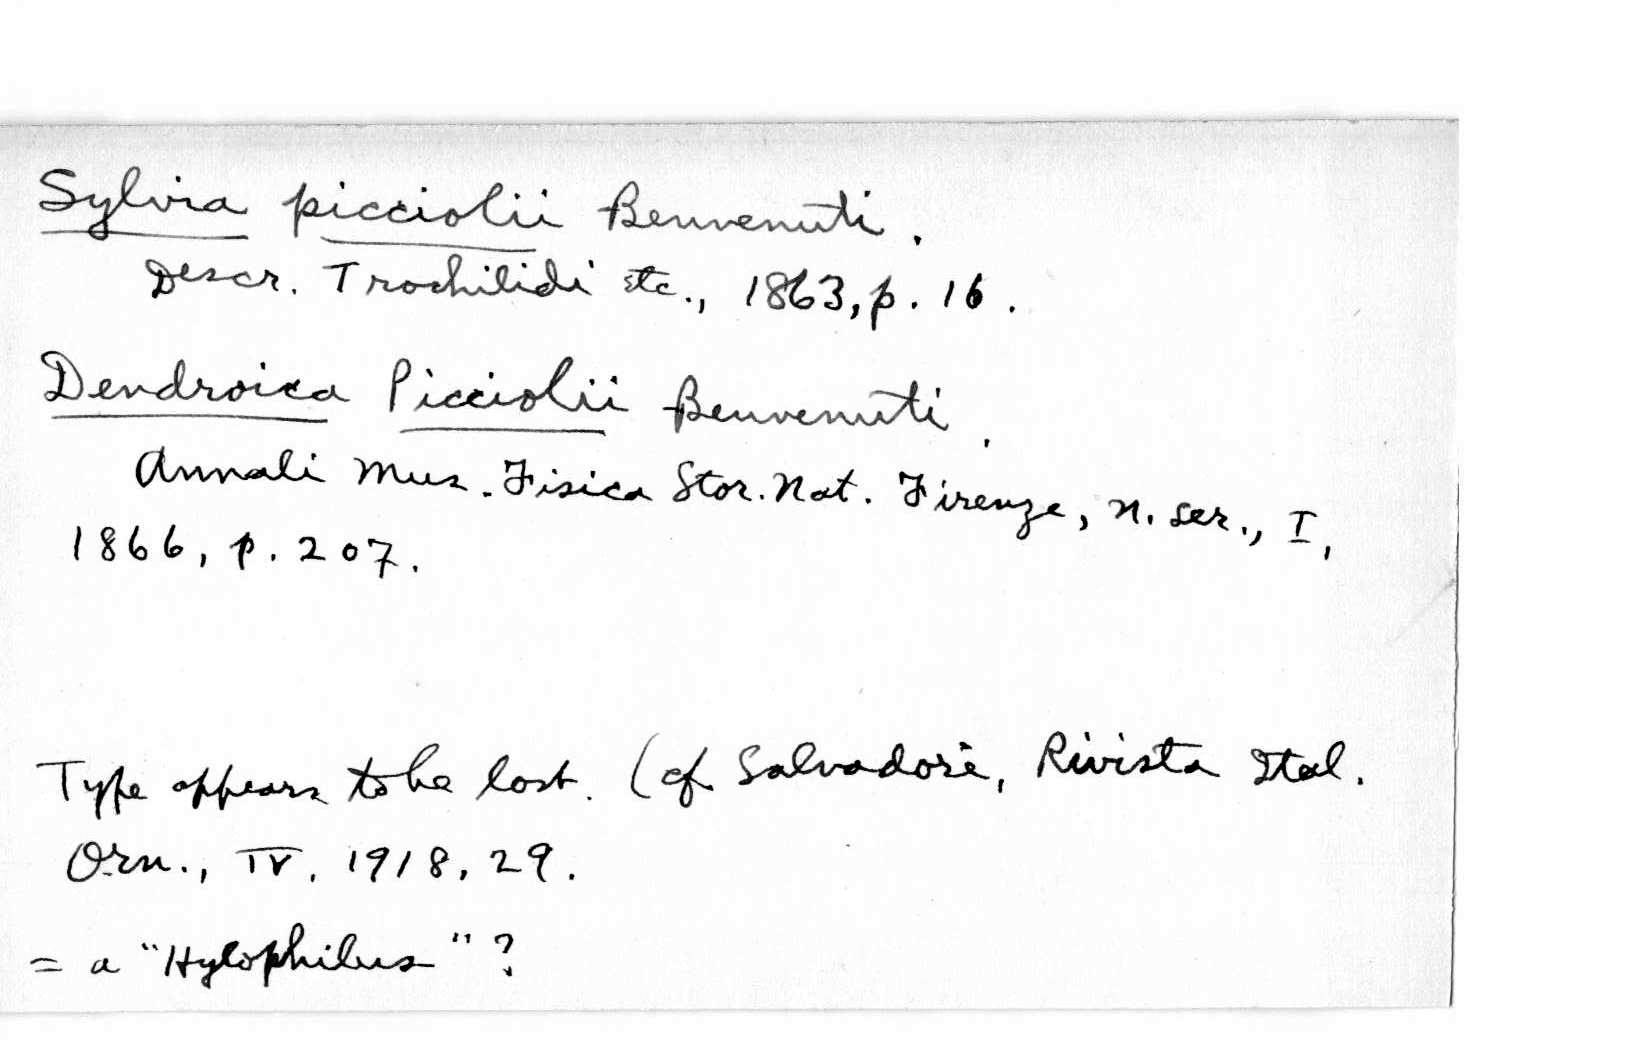 Sylvia picciolii Benvenuti.
Descr. Trochilidi etc., 1863, p. 16.
Dendroica Picciolii Benvenuti.
Annali Mus. Fisica Stor. Nat. Firenze, n. ser., I,
1866, p. 207.
Type appears to be lost. (cf. Salvadori, Rivista Ital.
Orn., IV, 1918, 29.
= a "Hylophilus"?